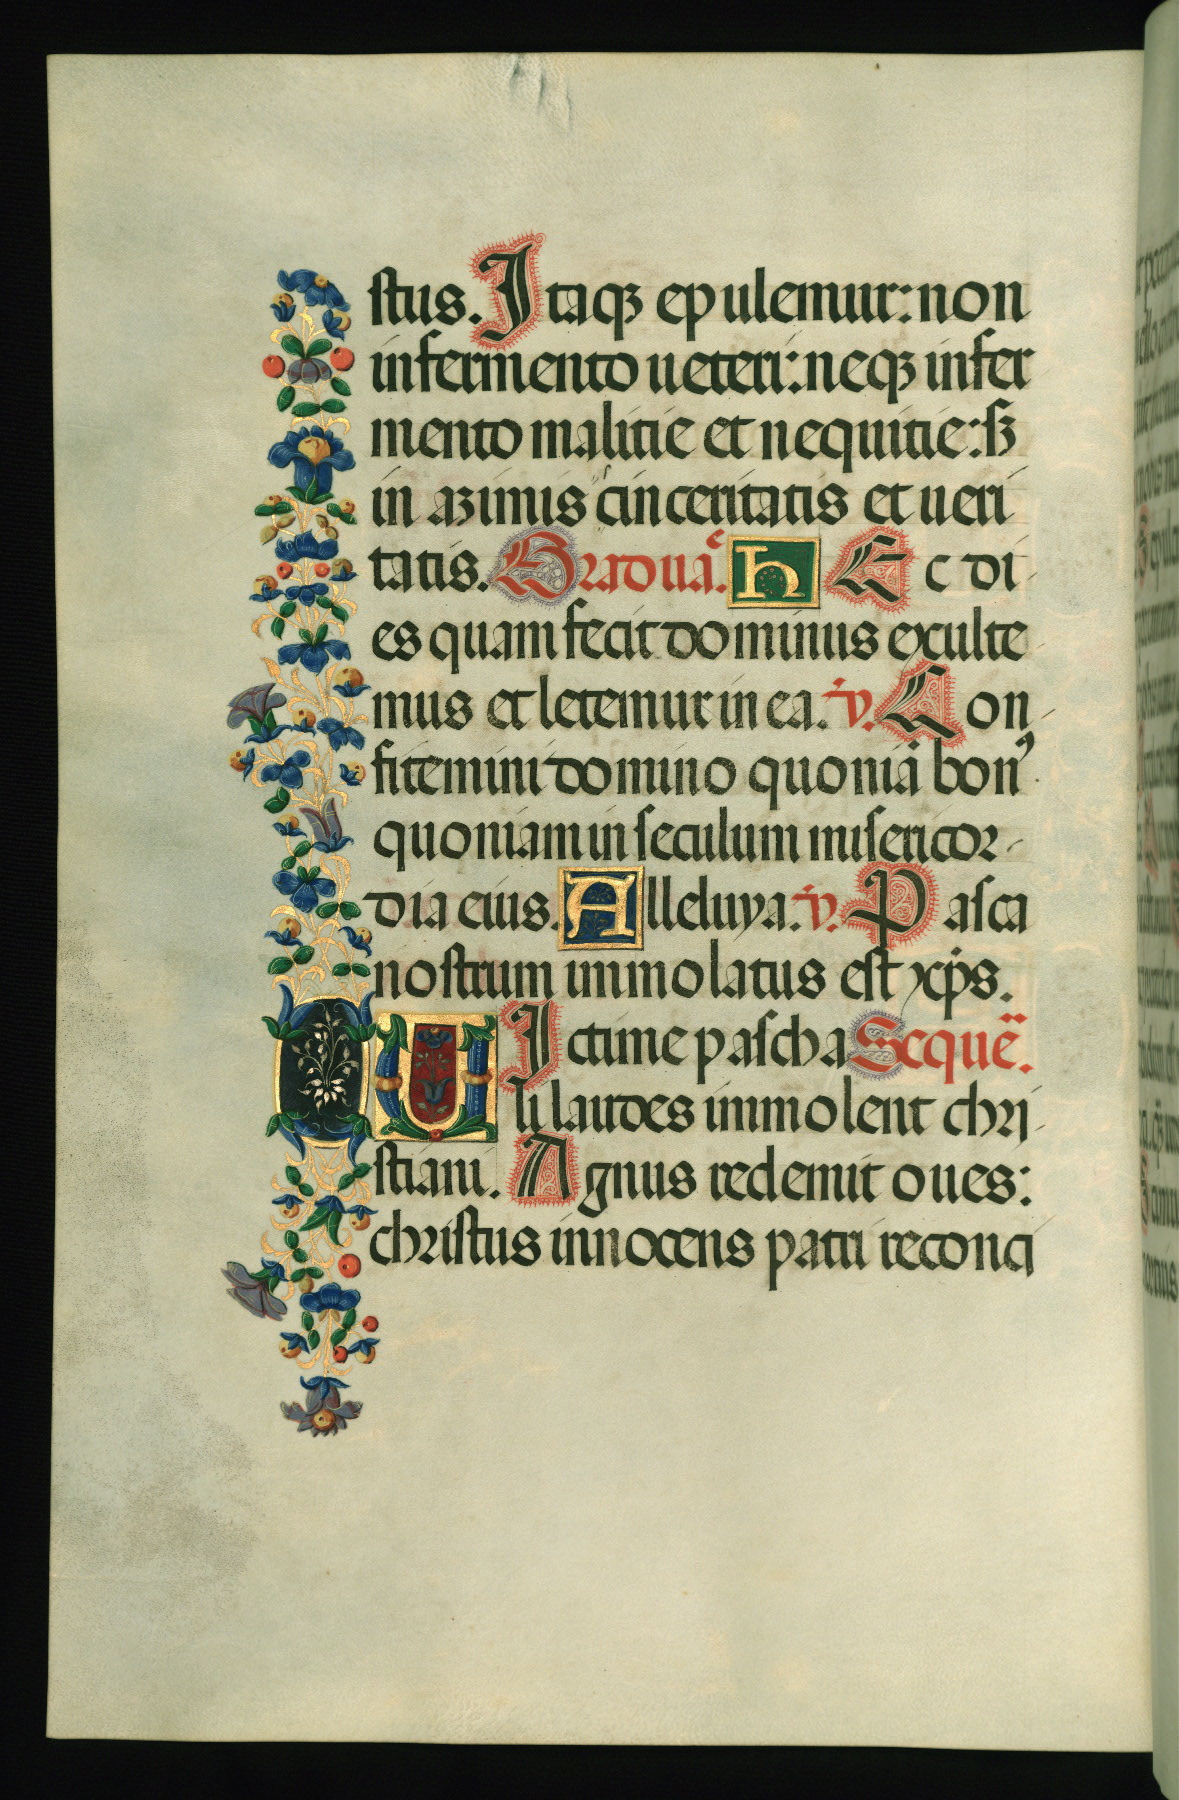 stus. Itaqꝫ epulemur: non
in fermento ueteri: neqꝫ in fer
mento malitie et nequitie: sꝫ
in azimis sinceritatis et ueri
tatis. Graduaˡ. hEc di
es quam fecit dominus exulte
mus et letemur in ea. v̇. Con
fitemini domino quoniā bonꝰ
quoniam in seculum misericor-
dia eius. Alleluya. v̇. Pasca
nostrum immolatus est xp̄s.
UIctime pascha Sequē.
li laudes immolent chri-
stiani. Agnus redemit oues:
christus innocens patri reconci